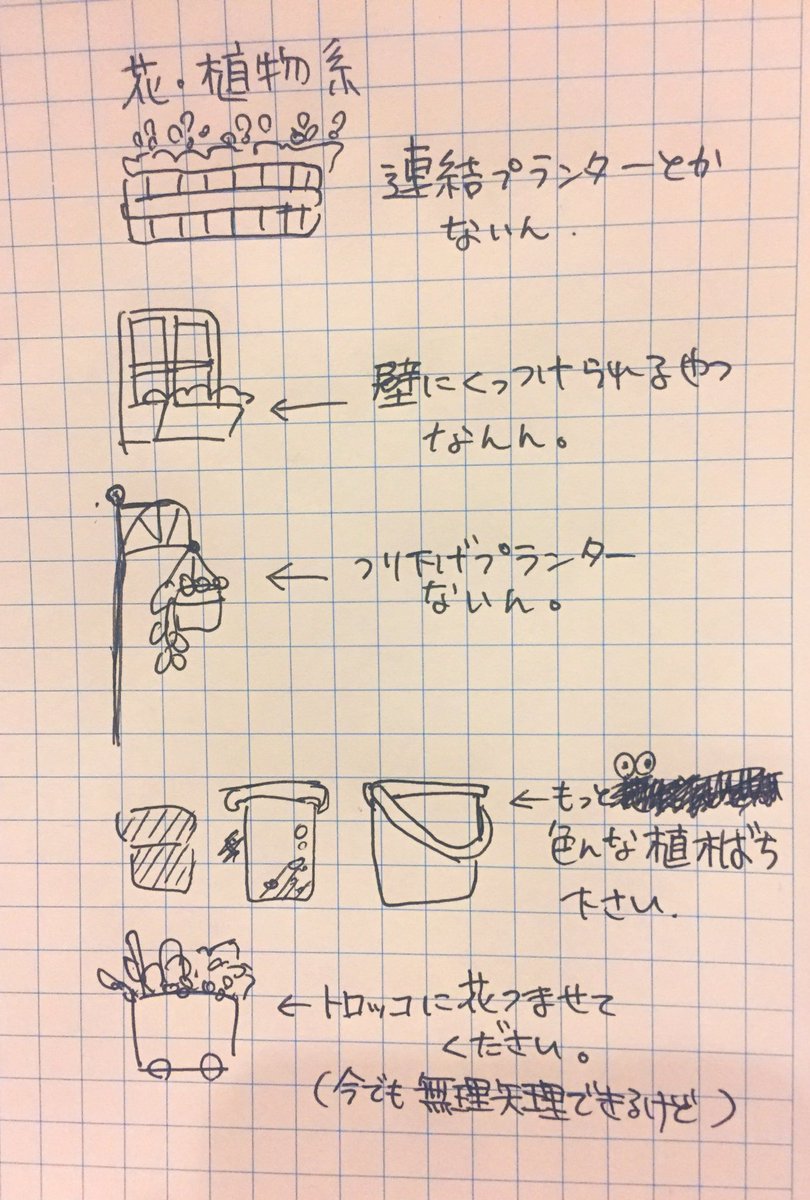 花・植物系
連結プランターとか
ないん.
壁にくっつけられるやつ
なんん。
つり下げプランター
ないん。
←もっと
色んな植木ばち
下さい.
←トロッコに花つませて
ください。
(今でも無理矢理できるけど)